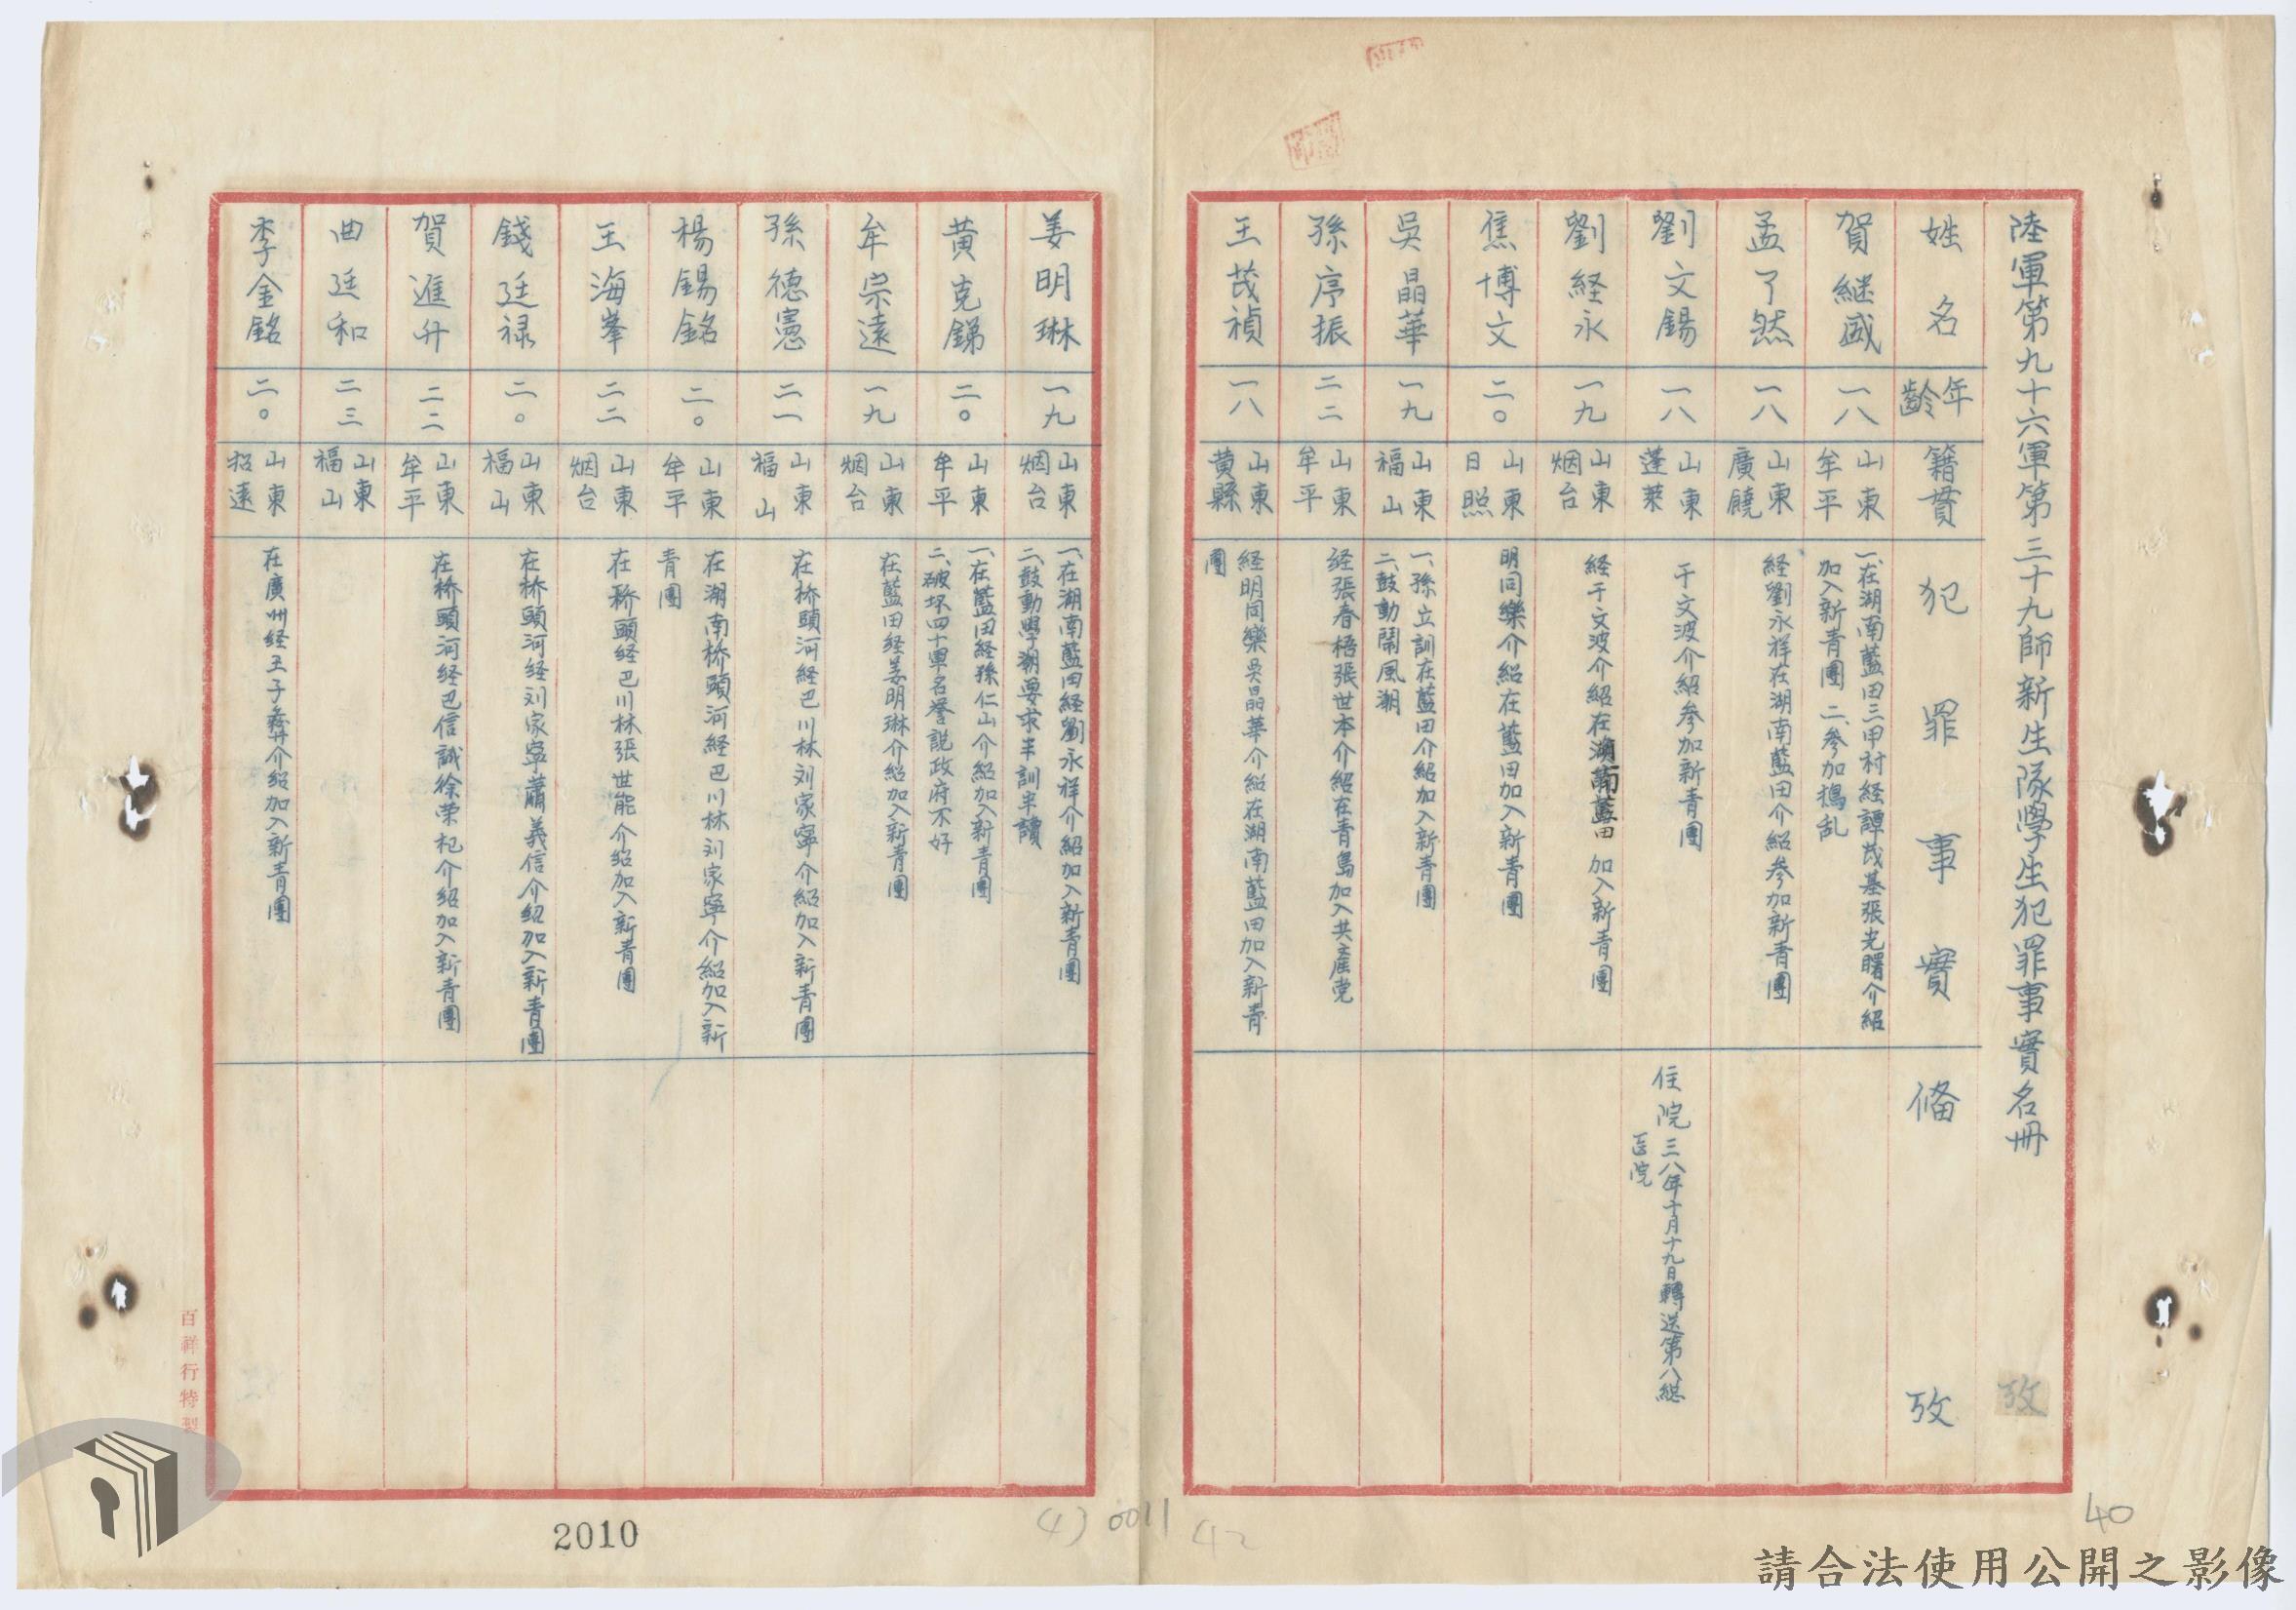 陸軍第九十六軍第三十九師新生隊學生犯罪事實名冊
攷
姓名
年齡
籍貫
犯罪事實
俻攷
賀継盛
一八
山東
牟平
一、在湖南藍田三甲村経譚茂基張光曙介紹
加入新青團 二、參加搗乱
孟了然
一八
山東
廣饒
経劉永祥在湖南藍田介紹參加新青團
劉文錫
一八
山東
蓬萊
于文波介紹參加新青團
住院三八年十月十九日轉送第八總
医院
劉経永
一九
山東
烟台
経于文波介紹在湖南藍田加入新青團
焦博文
二〇
山東
日照
明同樂介紹在藍田加入新青團
吳晶華
一九
山東
福山
一、孫立訓在藍田介紹加入新青團
二、鼓動鬧風潮
孫序振
二二
山東
牟平
経張春梧張世本介紹在青島加入共產党
王茂禎
一八
山東
黃縣
経明同樂吳晶華介紹在湖南藍田加入新青
團
姜明琳
一九
山東
烟台
一、在湖南藍田経劉永祥介紹加入新青團
二、鼓動學潮要求半訓半讀
黃克銻
二〇
山東
牟平
一、在藍田経孫仁山介紹加入新青團
二、破坏四十軍名譽說政府不好
牟宗遠
一九
山東
烟台
在藍田経姜明琳介紹加入新青團
孫德憲
二一
山東
福山
在桥頭河経巴川林刘家寧介紹加入新青團
楊錫銘
二〇
山東
牟平
在湖南桥頭河経巴川林刘家寧介紹加入新
青團
王海峯
二二
山東
烟台
在桥頭経巴川林張世能介紹加入新青團
錢廷禄
二〇
山東
福山
在桥頭河経刘家寧蕭義信介紹加入新青團
賀進升
二二
山東
牟平
在桥頭河経巴信誠徐荣杞介紹加入新青團
曲廷和
二三
山東
福山
李金銘
二〇
山東
招遠
在廣州経王子彝介紹加入新青團
百祥行特製
40
42
(4) 0011
2010
請合法使用公開之影像